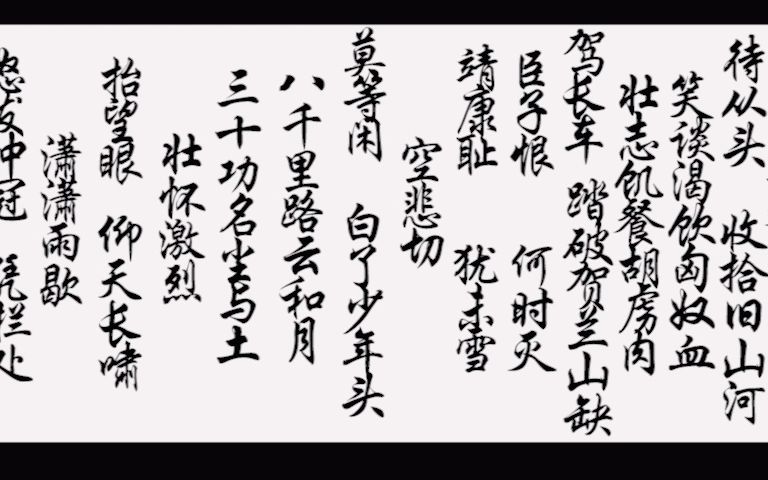 怒发冲冠 凭栏处
潇潇雨歇
抬望眼 仰天长啸
壮怀激烈
三十功名尘与土
八千里路云和月
莫等闲 白了少年头
空悲切
靖康耻 犹未雪
臣子恨 何时灭
驾长车 踏破贺兰山缺
壮志饥餐胡虏肉
笑谈渴饮匈奴血
待从头 收拾旧山河